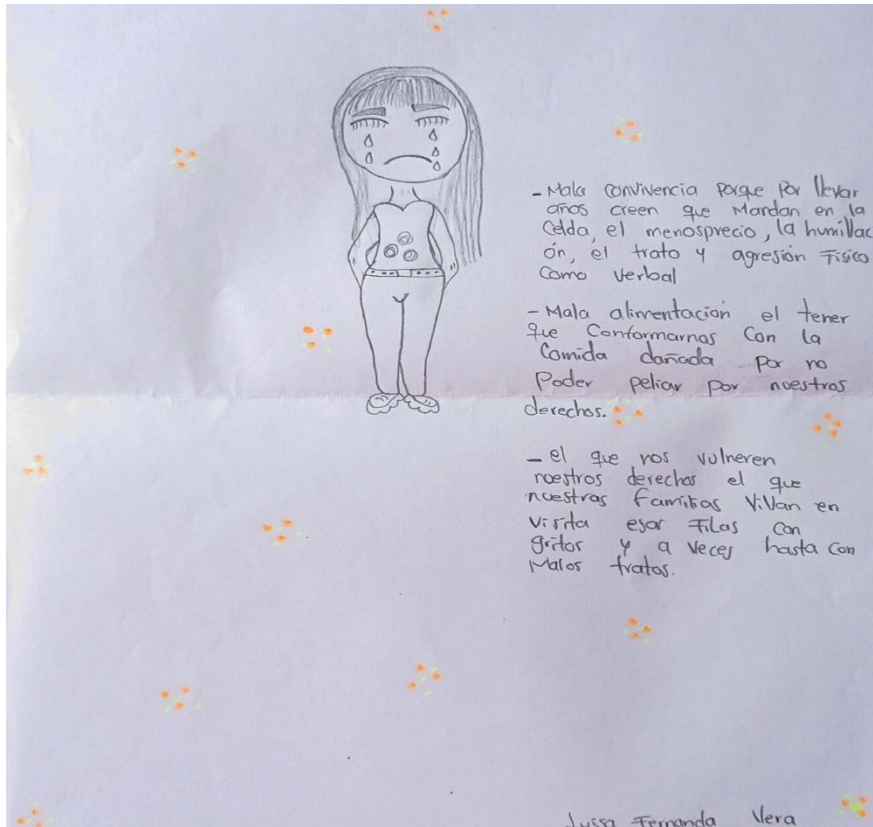 - Mala convivencia porque por llevar
años creen que Mandan en la
Celda, el menosprecio, la humillac
ón, el trato y agresión Fisico
Como verbal
- Mala alimentación el tener
que Conformarnos Con la
Comida dañada por no
Poder peliar por nuestros
derechos.
- el que nos vulneren
nuestros derechos el que
nuestras familias ViVan en
visita esas Filas con
gritos y a veces hasta con
Malos tratos.
Luisa Fernanda Vera